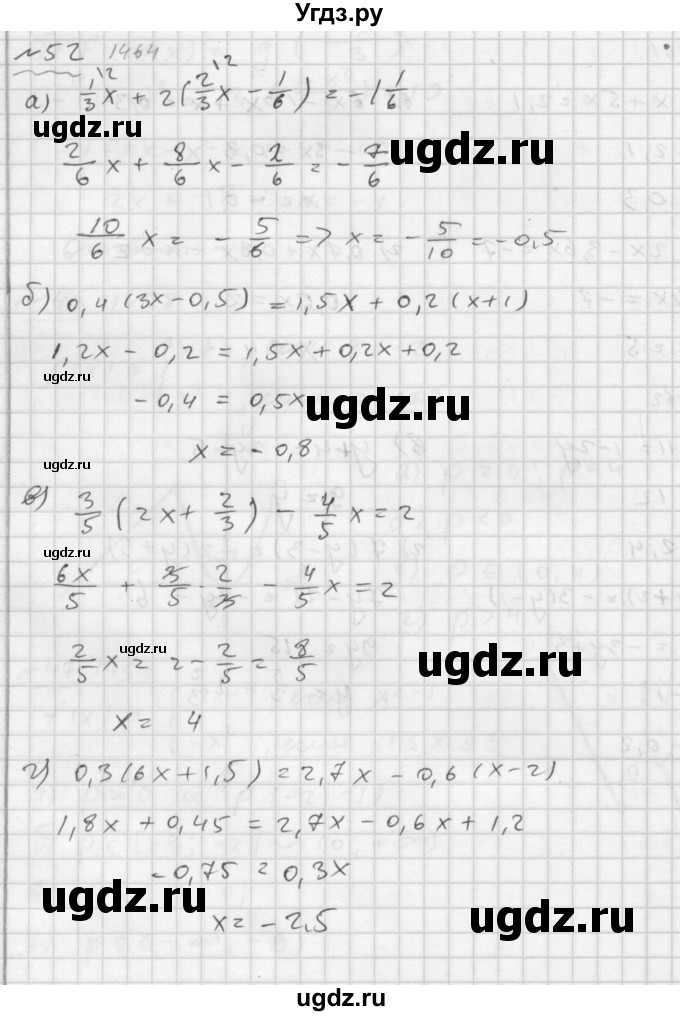 Угдз.ру
№52 1464
а) 1/3^\2 x + 2(2/3^\2 x - 1/6) = -1 1/6
ugdz.ru ugdz.ru
2/6 x + 8/6 x - 2/6 = - 7/6
10/6 x = - 5/6 => x = - 5/10 = -0,5
б) 0,4(3x-0,5) = 1,5x + 0,2(x+1)
1,2x - 0,2 = 1,5x + 0,2x + 0,2
ugdz.ru
-0,4 = 0,5x
ugdz.ru
x = -0,8
ugdz.ru
в) 3/5 (2x + 2/3) - 4/5 x = 2
6x/5 + 3/5 · 2/3 - 4/5 x = 2
ugdz.ru
2/5 x = 2 - 2/5 = 8/5
ugdz.ru ugdz.ru
x = 4
г) 0,3(6x+1,5) = 2,7x - 0,6(x-2)
1,8x + 0,45 = 2,7x - 0,6x + 1,2
-0,75 = 0,3x
ugdz.ru
x = -2,5
ugdz.ru
ugdz.ru